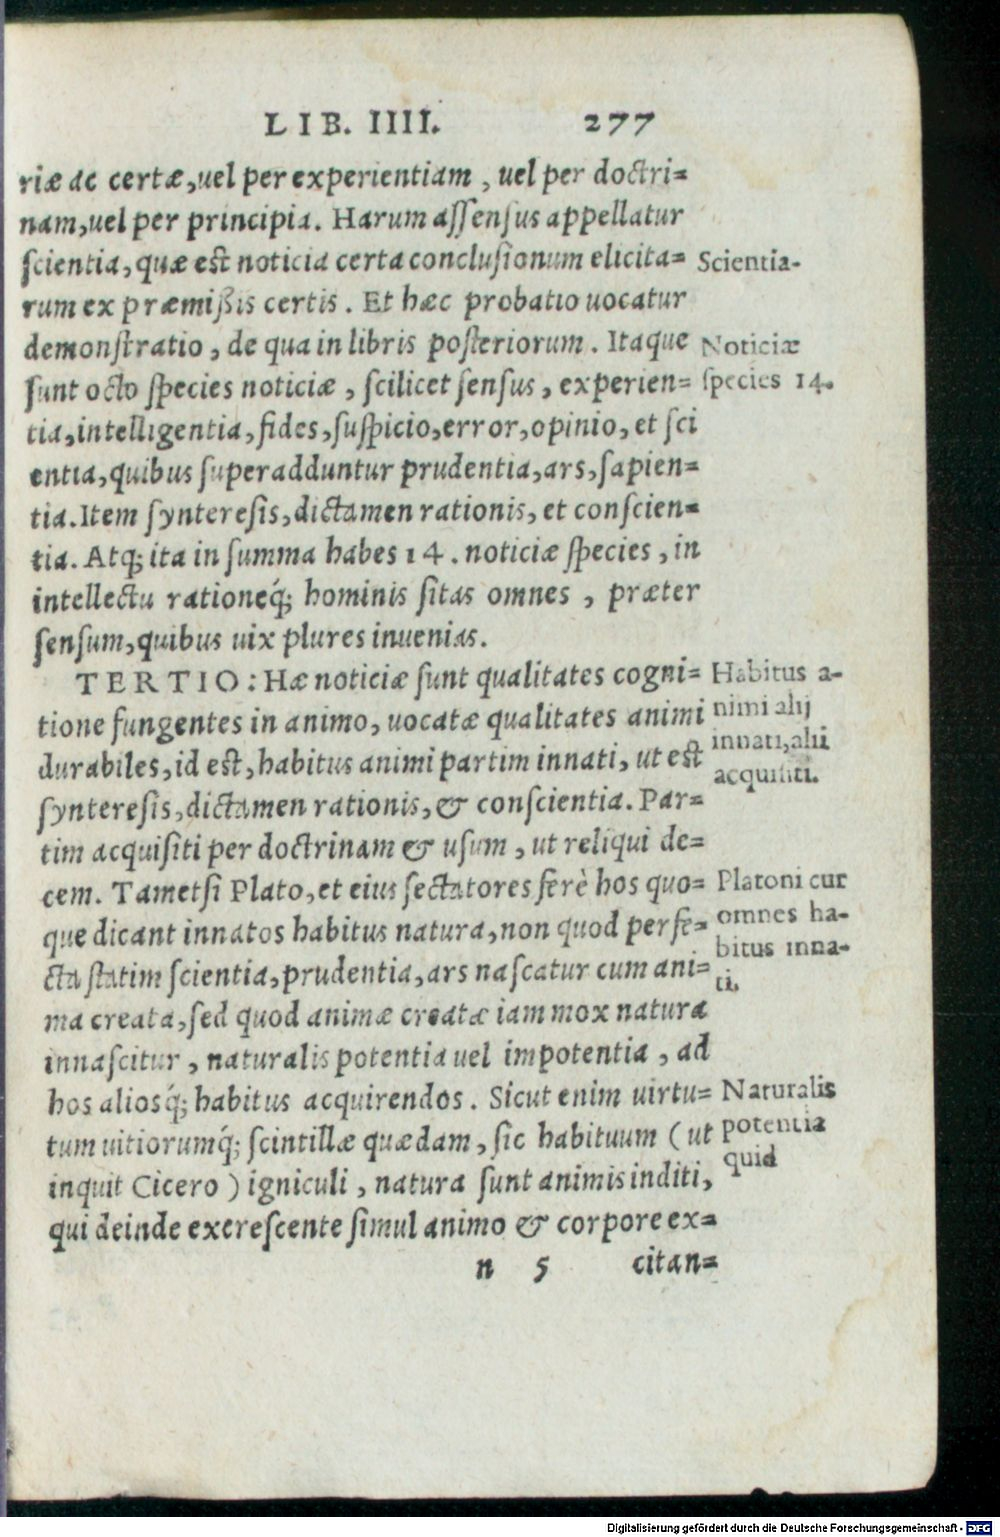 LIB. IIII. 277
riæ ac certæ, uel per experientiam, uel per doctri=
nam, uel per principia. Harum aſſenſus appellatur
ſcientia, quæ est noticia certa concluſionum elicita=
rum ex præmißis certis. Et hæc probatio uocatur
demonſtratio, de qua in libris poſteriorum. Itaque
ſunt octo ſpecies noticiæ, ſcilicet ſenſus, experien=
tia, intelligentia, fides, ſuſpicio, error, opinio, et ſci
entia, quibus ſuperadduntur prudentia, ars, ſapien=
tia. Item ſyntereſis, dictamen rationis, et conſcien=
tia. Atq; ita in ſumma habes 14. noticiæ ſpecies, in
intellectu rationeq́; hominis ſitas omnes, præter
ſenſum, quibus uix plures inuenias.
TERTIO: Hæ noticiæ ſunt qualitates cogni=
tione fungentes in animo, uocatæ qualitates animi
durabiles, id est, habitus animi partim innati, ut est
ſyntereſis, dictamen rationis, & conſcientia. Par=
tim acquiſiti per doctrinam & uſum, ut reliqui de=
cem. Tametſi Plato, et eius ſectatores ferè hos quo=
que dicant innatos habitus natura, non quod perfe=
cta ſtatim ſcientia, prudentia, ars naſcatur cum ani=
ma creata, ſed quod animæ creatæ iam mox natura
innaſcitur, naturalis potentia uel impotentia, ad
hos aliosq́; habitus acquirendos. Sicut enim uirtu=
tum uitiorumq́; ſcintillæ quædam, ſic habituum (ut
inquit Cicero) igniculi, natura ſunt animis inditi,
qui deinde excreſcente ſimul animo & corpore ex=
n 5 citan=
Scientia.
Noticiæ
ſpecies 14.
Habitus a-
nimi alij
innati, alii
acquiſiti.
Platoni cur
omnes ha-
bitus inna-
ti.
Naturalis
potentia
quid
Digitalisierung gefördert durch die Deutsche Forschungsgemeinschaft - DFG